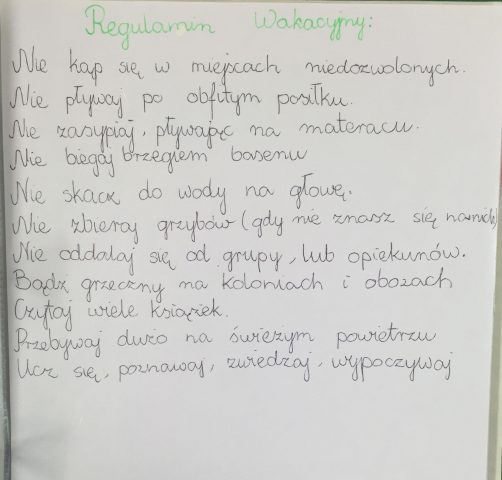 Regulamin Wakacyjny:
Nie kąp się w miejscach niedozwolonych.
Nie pływaj po obfitym posiłku.
Nie zasypiaj, pływając na materacu.
Nie biegaj brzegiem basenu
Nie skacz do wody na głowę.
Nie zbieraj grzybów (gdy nie znasz się na nich)
Nie oddalaj się od grupy, lub opiekunów.
Bądź grzeczny na koloniach i obozach
Czytaj wiele książek.
Przebywaj dużo na świeżym powietrzu
Ucz się, poznawaj, zwiedzaj, wypoczywaj